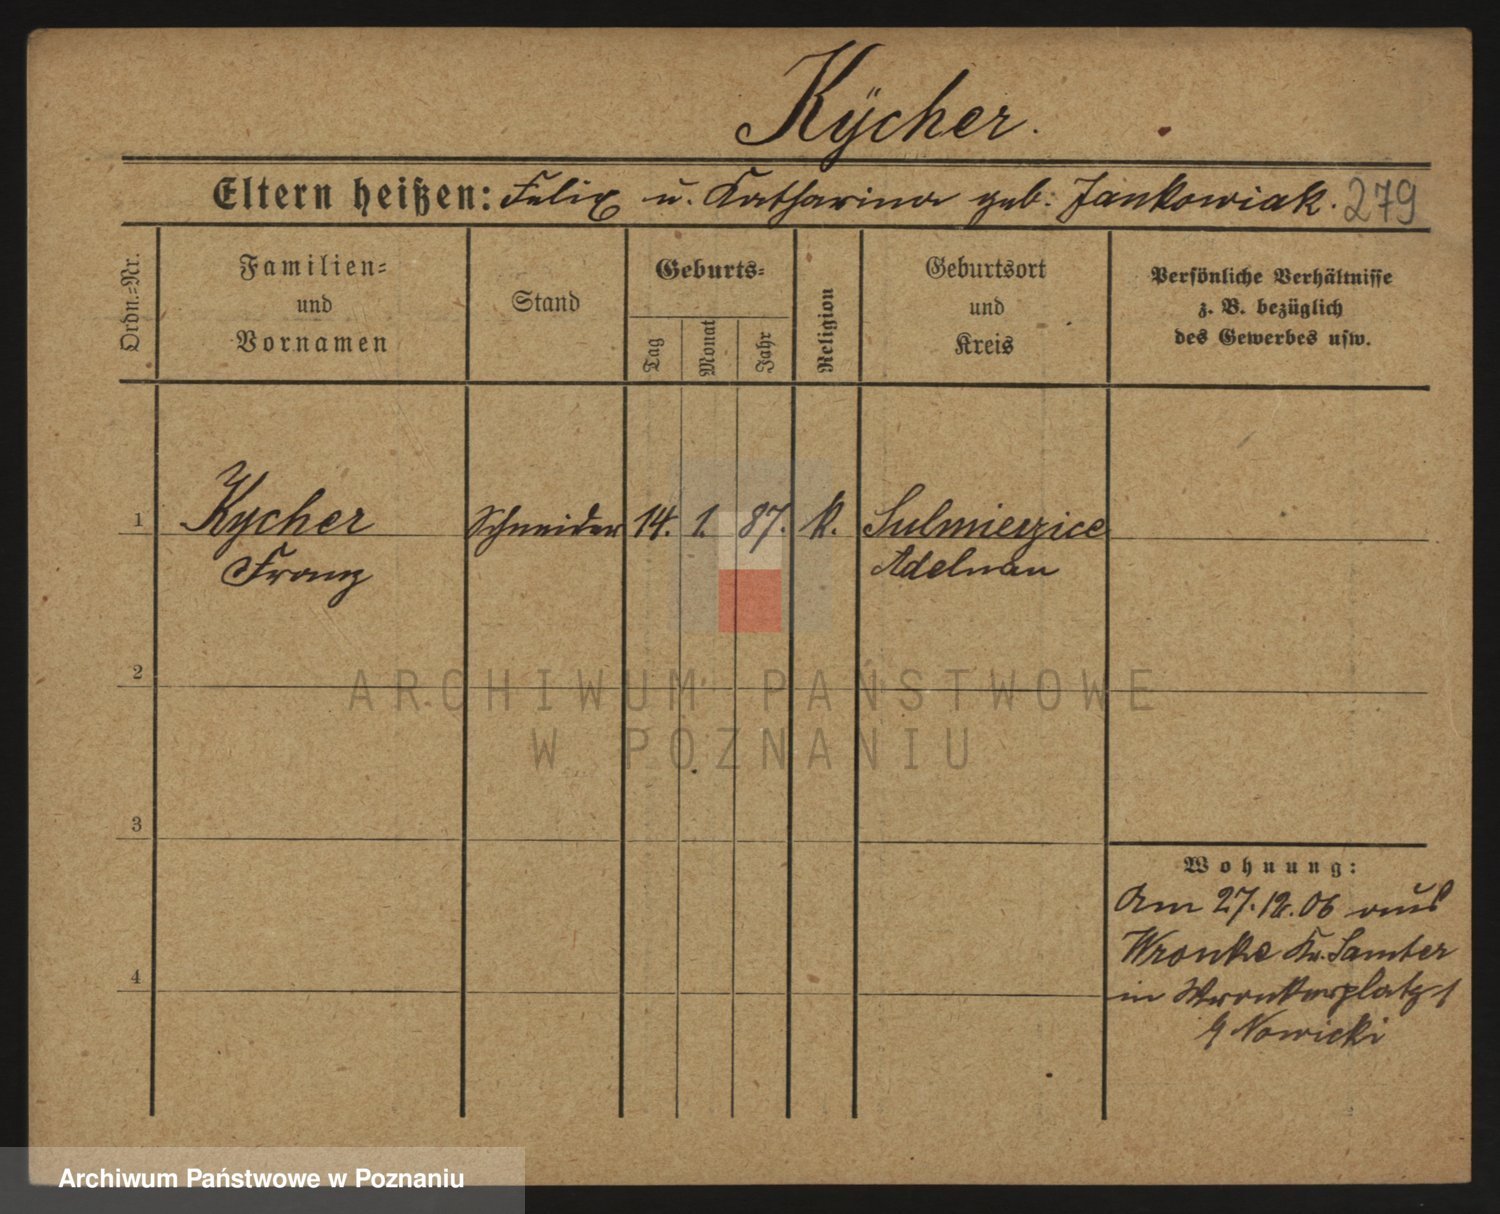 Kÿcher.
Eltern heißen: Felix u. Katharina geb. Jankowiak. 279
Ordn.-Nr.
Familien-
und
Vornamen
Stand
Geburts-
Tag
Monat
Jahr
Religion
Geburtsort
und
Kreis
Persönliche Verhältnisse
z. B. bezüglich
des Gewerbes usw.
1 Kycher Schneider 14. 1. 87. k. Sulmierzice
Franz Adelnau
2
ARCHIWUM PAŃSTWOWE
W POZNANIU
3
Wohnung:
Am 27.12.06 aus
Wronke Kr. Samter
4
in Wronkerplatz 1
Nowicki
Archiwum Państwowe w Poznaniu